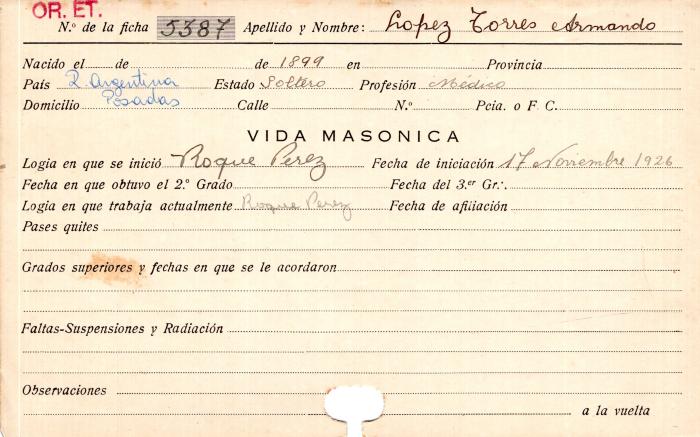 OR. ET.
N.º de la ficha 5387 Apellido y Nombre: Lopez Torres Armando
Nacido el de de 1899 en Provincia
País R. Argentina Estado Soltero Profesión Médico
Domicilio Posadas Calle N.º Pcia. o F. C.
VIDA MASONICA
Logia en que se inició Roque Perez Fecha de iniciación 17 Noviembre 1926
Fecha en que obtuvo el 2.º Grado Fecha del 3.er Gr∴
Logia en que trabaja actualmente Roque Perez Fecha de afiliación
Pases quites
Grados superiores y fechas en que se le acordaron
Faltas-Suspensiones y Radiación
Observaciones
a la vuelta